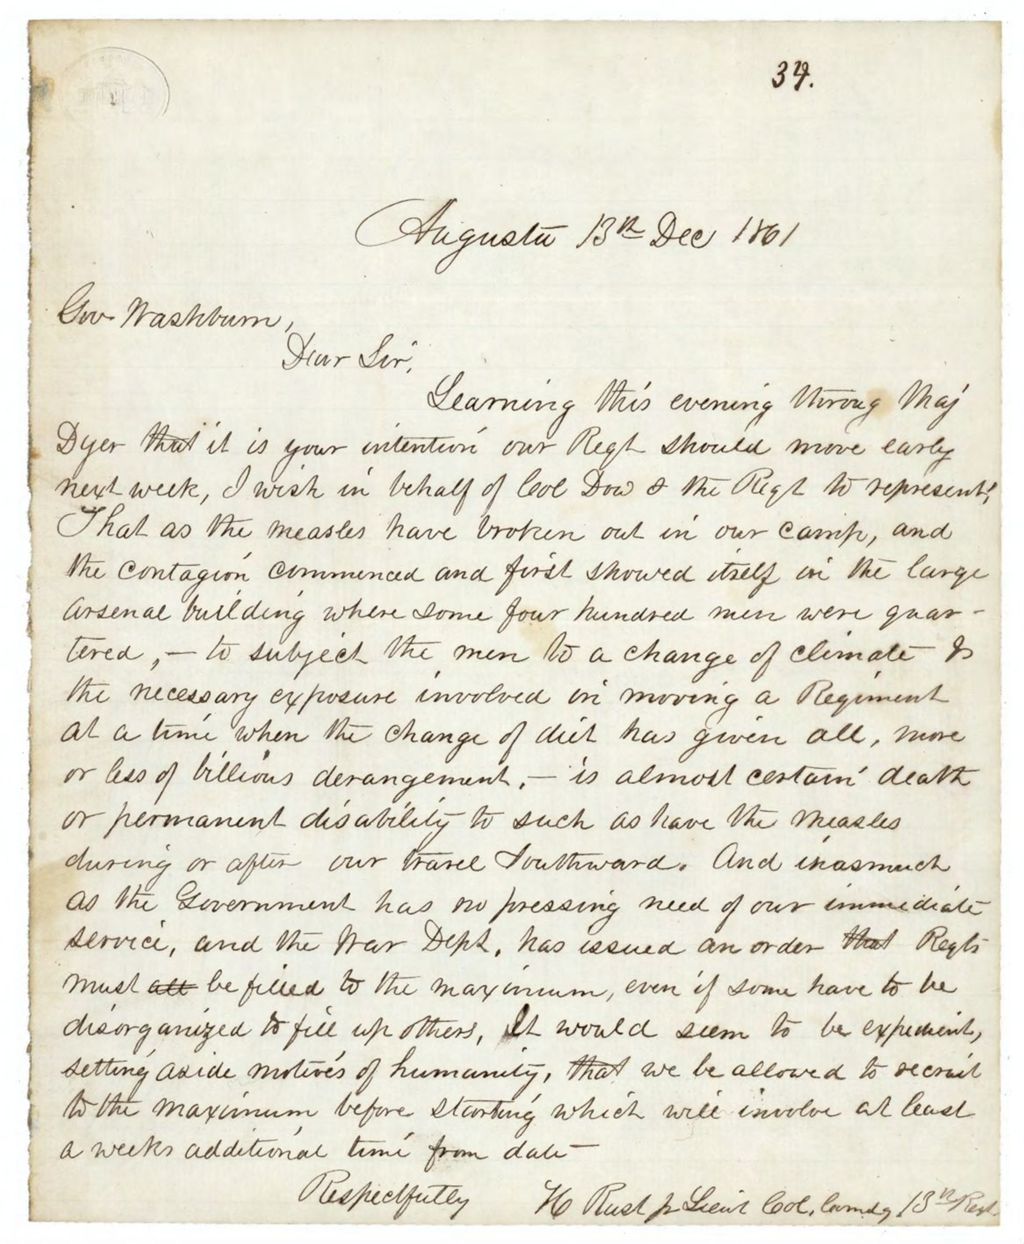 34.
Augusta 13th Dec 1861
Gov Washburn,
Dear Sir,
Learning this evening throug Maj
Dyer that it is your intention our Regt should move early
next week, I wish in behalf of Col Dow & the Regt to represent,
That as the measles have broken out in our camp, and
the contagion commenced and first showed itself in the large
Arsenal building where some four hundred men were quar-
tered, — to subject the men to a change of climate &
the necessary exposure involved in moving a Regiment
at a time when the change of diet has given all, more
or less of billious derangement, — is almost certain death
or permanent disability to such as have the measles
during or after our travel Southward. And inasmuch
as the Government has no pressing need of our immediate
service, and the War Dept, has issued an order that Regts
must all be filled to the maximum, even if some have to be
disorganized to fill up others, It would seem to be expedient,
setting aside motives of humanity, that we be allowed to recruit
to the maximum before starting which will involve at least
a weeks additional time from date
Respectfully H Rust jr Lieut Col. Comdg 13th Regt